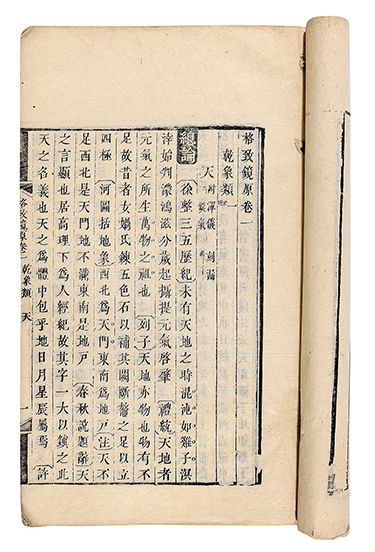 格致鏡原卷一
乾象類一
天 渾儀 刻漏
候氣
總論 徐整三五歷紀未有天地之時混沌如雞子溟
涬始判濛鴻滋分歲起攝提元氣啓肇 禮統天地者
元氣之所生萬物之祖也 列子天地亦物也物有不
足故昔者女媧氏鍊五色石以補其闕斷鼇之足以立
四極 河圖括地象西北爲天門東南爲地戶注天不
足西北是天門地不滿東南是地戶 春秋說題辭天
之言顚也居高理下爲人經紀故其字一大以鎮之此
天之名義也天之爲體中包乎地日月星辰屬焉 許
格致鏡原卷一 乾象類 天 一